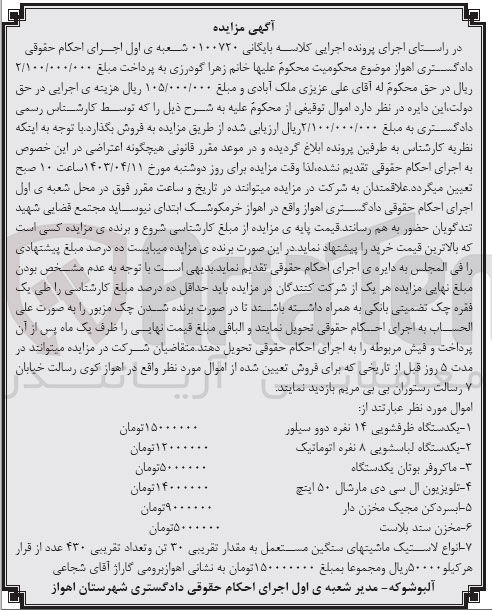 آگهی مزایده
در راستای اجرای پرونده اجرایی کلاسه بایگانی ۰۱۰۰۷۲۰ شعبه ی اول اجرای احکام حقوقی
دادگستری اهواز موضوع محکومیت محکومٌ علیها خانم زهرا گودرزی به پرداخت مبلغ ۲/۱۰۰/۰۰۰/۰۰۰
ریال در حق محکومٌ له آقای علی عزیزی ملک آبادی و مبلغ ۱۰۵/۰۰۰/۰۰۰ ریال هزینه ی اجرایی در حق
دولت،این دایره در نظر دارد اموال توقیفی از محکومٌ علیه به شرح ذیل را که توسط کارشناس رسمی
دادگستری به مبلغ ۲/۱۰۰/۰۰۰/۰۰۰ریال ارزیابی شده از طریق مزایده به فروش بگذارد.با توجه به اینکه
نظریه کارشناس به طرفین پرونده ابلاغ گردیده و در موعد مقرر قانونی هیچگونه اعتراضی در این خصوص
به اجرای احکام حقوقی تقدیم نشده،لذا وقت مزایده برای روز دوشنبه مورخ ۱۴۰۳/۰۴/۱۱ساعت ۱۰ صبح
تعیین میگردد.علاقمندان به شرکت در مزایده میتوانند در تاریخ و ساعت مقرر فوق در محل شعبه ی اول
اجرای احکام حقوقی دادگستری اهواز واقع در اهواز خرمکوشک ابتدای نیوساید مجتمع قضایی شهید
تندگویان حضور به هم رسانند.قیمت پایه ی مزایده از مبلغ کارشناسی شروع و برنده ی مزایده کسی است
که بالاترین قیمت خرید را پیشنهاد نماید.در این صورت برنده ی مزایده میبایست ده درصد مبلغ پیشنهادی
را فی المجلس به دایره ی اجرای احکام حقوقی تقدیم نماید.بدیهی است با توجه به عدم مشخص بودن
مبلغ نهایی مزایده هر یک از شرکت کنندگان در مزایده باید حداقل ده درصد مبلغ کارشناسی را طی یک
فقره چک تضمینی بانکی به همراه داشته باشند تا در صورت برنده شدن چک مزبور را به صورت علی
الحساب به اجرای احکام حقوقی تحویل نمایند و الباقی مبلغ قیمت نهایی را ظرف یک ماه پس از آن
پرداخت و فیش مربوطه را به اجرای احکام حقوقی تحویل دهند.متقاضیان شرکت در مزایده میتوانند در
مدت ۵ روز قبل از تاریخی که برای فروش تعیین شده از اموال مورد نظر واقع در اهواز کوی رسالت خیابان
۷ رسالت رستوران بی بی مریم بازدید نمایند.
اموال مورد نظر عبارتند از:
۱-یکدستگاه ظرفشویی ۱۴ نفره دوو سیلور ۱۵۰۰۰۰۰۰تومان
۲-یکدستگاه لباسشویی ۸ نفره اتوماتیک ۱۲۰۰۰۰۰۰تومان
۳- ماکروفر بوتان یکدستگاه ۵۰۰۰۰۰۰تومان
۴-تلویزیون ال سی دی مارشال ۵۰ اینچ ۱۴۰۰۰۰۰۰تومان
۵-آبسردکن مجیک مخزن دار ۹۰۰۰۰۰۰تومان
۶-مخزن سند بلاست ۵۰۰۰۰۰۰تومان
۷-انواع لاستیک ماشینهای سنگین مستعمل به مقدار تقریبی ۳۰ تن وتعداد تقریبی ۴۳۰ عدد از قرار
هرکیلو۵۰۰۰۰ریال ومجموعا بمبلغ ۱۵۰۰۰۰۰۰۰تومان به نشانی اهوازبرومی گاراژ آقای شجاعی
آلبوشوکه- مدیر شعبه ی اول اجرای احکام حقوقی دادگستری شهرستان اهواز